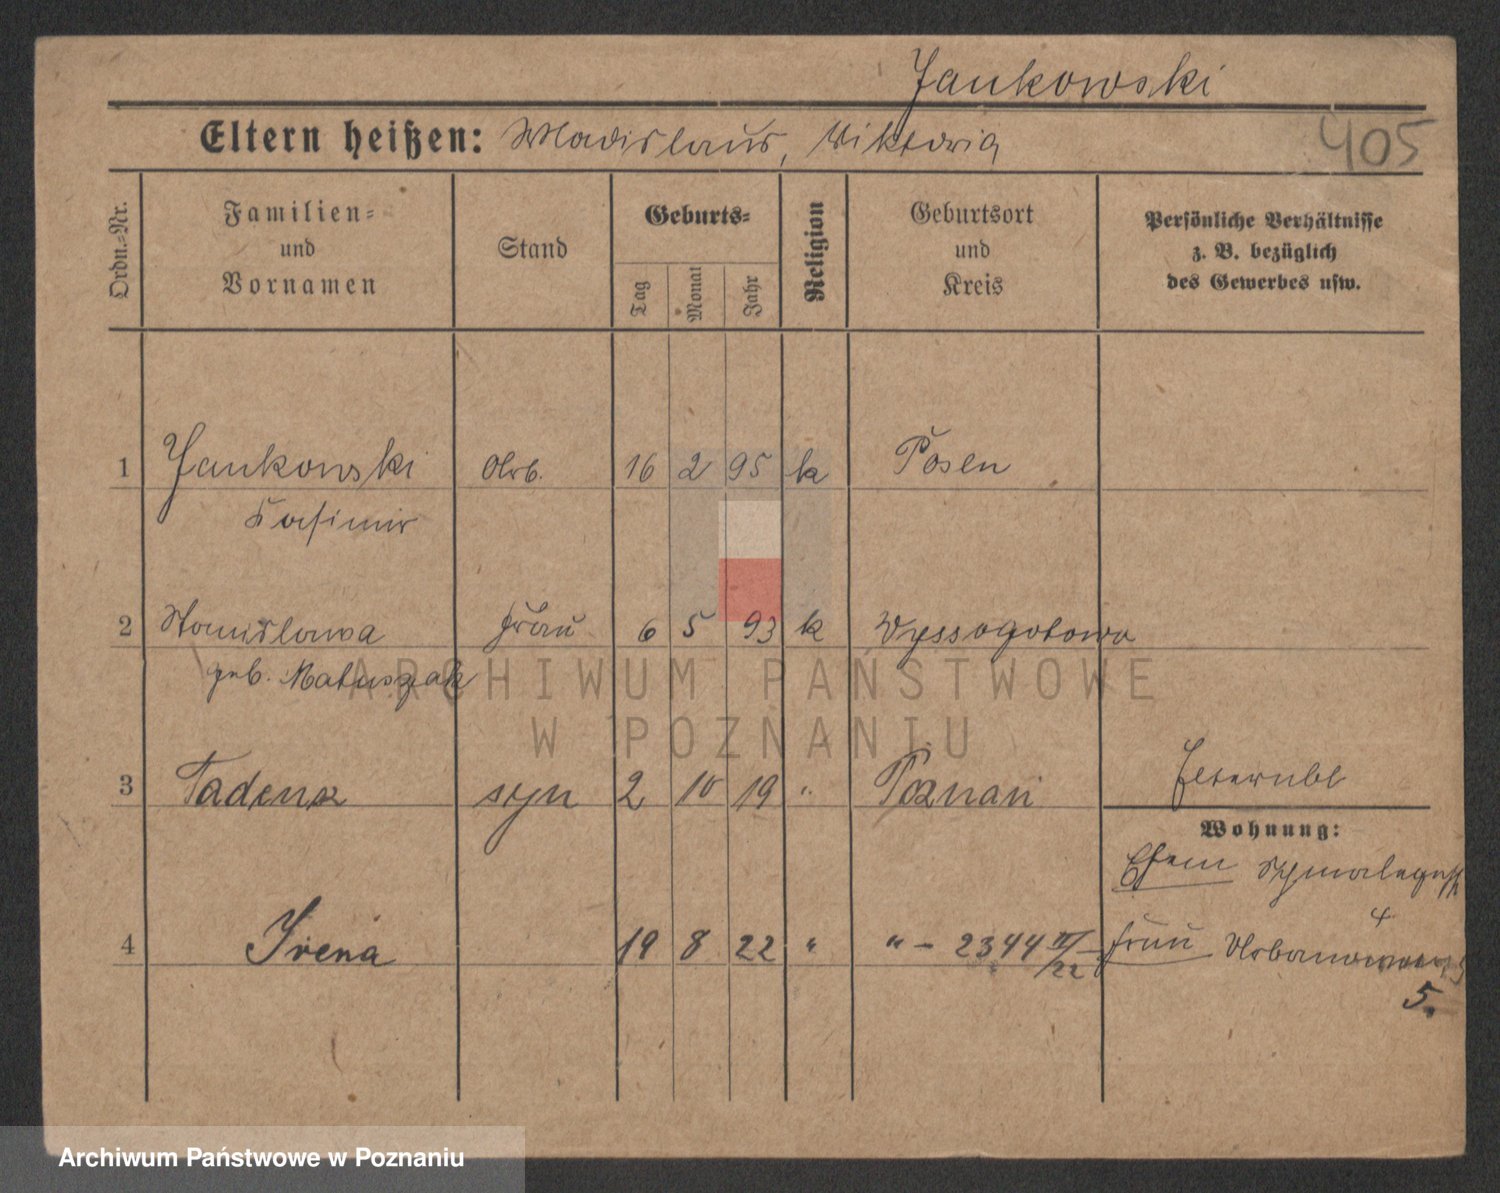 Jankowski
Eltern heißen: Wladislaus, Viktoria
405
Ordn.-Nr.
Familien-
und
Vornamen
Stand
Geburts-
Tag
Monat
Jahr
Religion
Geburtsort
und
Kreis
Persönliche Verhältnisse
z. B. bezüglich
des Gewerbes usw.
1 Jankowski Arb. 16 2 95 k Posen
Kasimir
2 Stanislawa Frau 6 5 93 k Wyssogotowo
geb. Matuszak
ARCHIWUM PAŃSTWOWE
W POZNANIU
3 Tadeusz syn 2 10 19 " Poznań
Wohnung:
Ehem
4
4 Irena 19 8 22 " " - 2344 III/22
Frau
5.
Archiwum Państwowe w Poznaniu